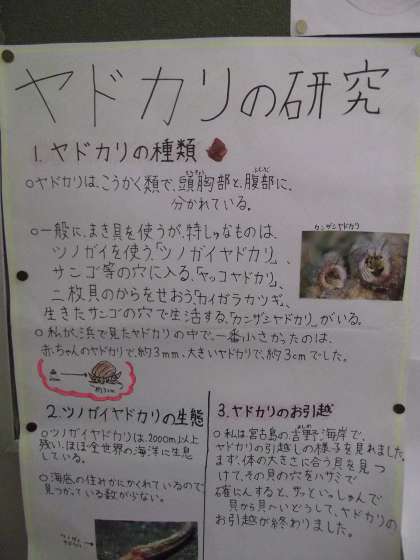 ヤドカリの研究
1. ヤドカリの種類
○ヤドカリは、こうかく類で、頭胸部と、腹部に、
分かれている。
○一般に、まき貝を使うが、特しゅなものは、
ツノガイを使う「ツノガイヤドカリ」、
サンゴ等の穴に入る、「ヤッコヤドカリ」、
二枚貝のからをせおう「カイガラカツギ」、
生きたサンゴの穴で生活する、「カンザシヤドカリ」がいる。
カンザシヤドカリ
○私が浜で見たヤドカリの中で、一番小さかったのは、
赤ちゃんのヤドカリで、約3mm、大きいヤドカリで、約3cmでした。
約3cm
2. ツノガイヤドカリの生態
○ツノガイヤドカリは、2000m以上
ほぼ全世界の海洋に生息
している。
○海底の住みかにかくれているので
見つかっている数が少ない。
3. ヤドカリのお引越
○私は宮古島の、吉野海岸で、
ヤドカリの引越しの様子を見れました。
まず、体の大きさに合う貝を見つ
けて、その貝の穴をハサミで
確にんすると、サッと、いっしゅんで
貝から貝へいどうして、ヤドカリの
お引越が終わりました。